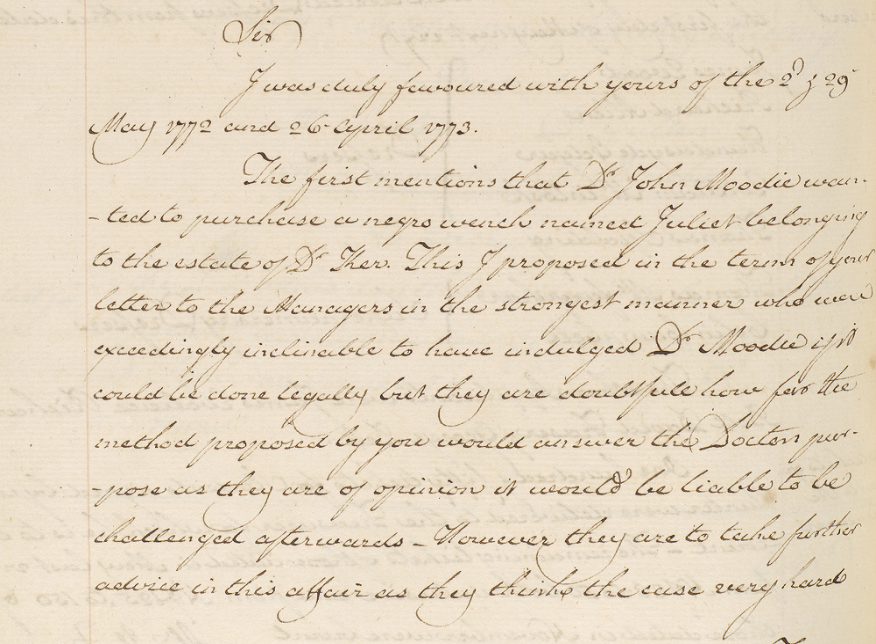 Sir
I was duly favoured with yours of the 2d & 29
May 1772 and 26 April 1773.
The first mentions that Dr John Moodie wan-
-ted to purchase a negro wench named Juliet belonging
to the estate of Dr Ker. This I proposed in the terms of your
letter to the Managers in the strongest manner who were
exceedingly inclinable to have indulged Dr Moodie if it
could be done legally but they are doubtfull how far the
method proposed by you would answer the Doctors pur-
-pose as they are of opinion it would be liable to be
challenged afterwards - However they are to take further
advice in this affair as they think the case very hard